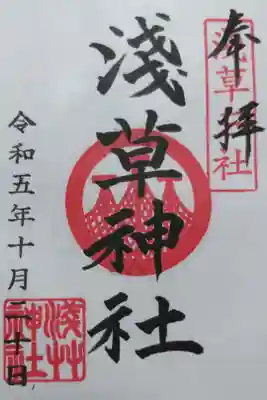 奉拝
浅草社
淺草神社
令和五年十月二十日
淺草
神社